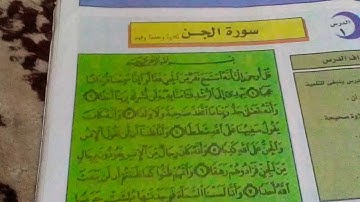 الدرس
١
سورة الجن
تلاوة وحفظا وفهم
اف الدرس
بسم الله الرحمن الرحيم
قل أوحي إلي أنه استمع نفر من الجن فقالوا إنا سمعنا قرءانا
عجبا ١ يهدي إلى الرشد فئامنا به ولن نشرك بربنا أحدا ٢
وأنه تعلى جد ربنا ما اتخذ صحبة ولا ولدا ٣ وأنه كان
يقول سفيهنا على الله شططا ٤ وأنا ظننا أن لن تقول الإنس
والجن على الله كذبا ٥ وأنه كان رجال من الإنس يعوذون برجال
من الجن فزادوهم رهقا ٦ وأنهم ظنوا كما ظننتم أن لن يبعث
الله أحدا ٧ وأنا لمسنا السماء فوجدنها ملئت حرسا